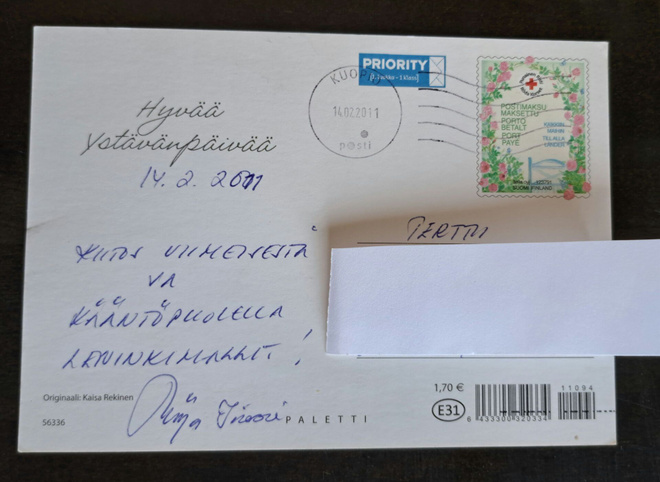 PRIORITY
KUOPIO
14.02.2011
posti
POSTIMAKSU
MAKSETTU
PORTO
BETALT
PORT
PAYE
SUOMI FINLAND
Hyvää
Ystävänpäivää
14.2.2011
PERTTI
KIITOS VIIMEISESTÄ
JA
KÄÄNTÖPUOLELLA
LENINKIMALLIT!
Originaali: Kaisa Rekinen
56336
PALETTI
1,70 €
E31
11094
6 433300 320334